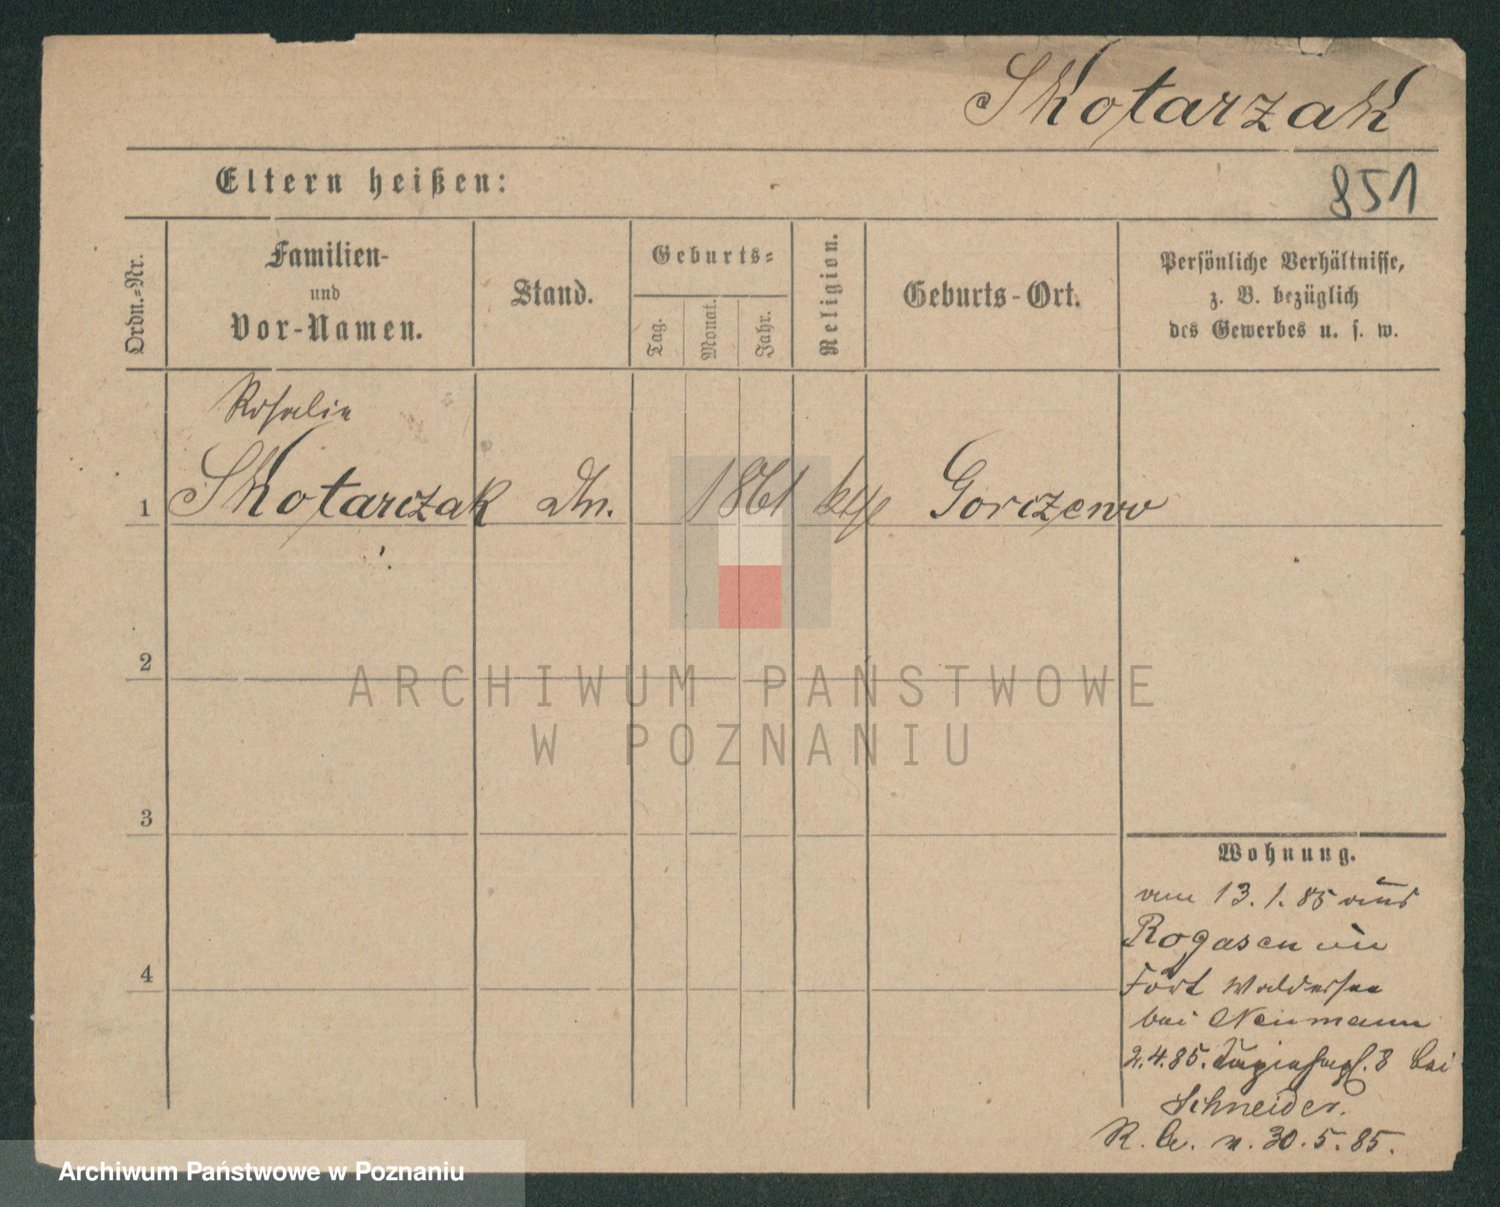 Skotarzak
Eltern heißen:
851
Ordn.-Nr.
Familien-
und
Vor-Namen.
Stand.
Geburts-
Tag.
Monat.
Jahr.
Religion.
Geburts-Ort.
Persönliche Verhältnisse,
z. B. bezüglich
des Gewerbes u. s. w.
Rosalie
1 Skotarczak Dn. 1861 Gorczewo
2
ARCHIWUM PAŃSTWOWE
W POZNANIU
3
4
Wohnung.
am 13. 1. 85 aus
Rogasen in
Fort Waldersee
bei Neumann
2.4.85. 8 bei
Schneider.
30.5.85.
Archiwum Państwowe w Poznaniu